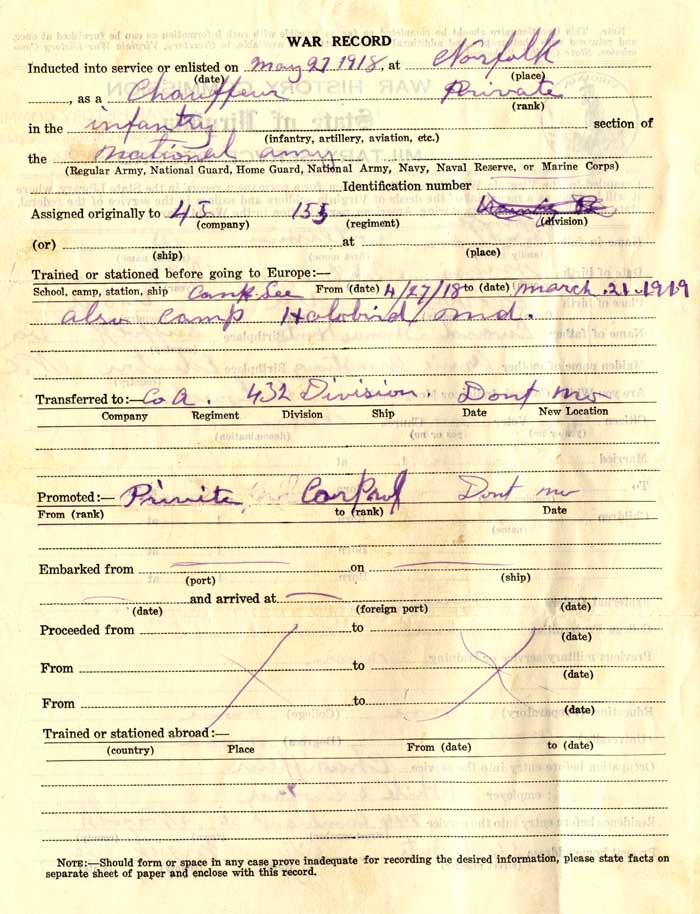 WAR RECORD
Inducted into service or enlisted on May 27 1918, at Norfolk
(date) (place)
, as a Chauffeur Private
(rank)
in the infantry section of
(infantry, artillery, aviation, etc.)
the national army
(Regular Army, National Guard, Home Guard, National Army, Navy, Naval Reserve, or Marine Corps)
Identification number
Assigned originally to 155
(company) (regiment) (division)
(or) at
(ship) (place)
Trained or stationed before going to Europe:—
School, camp, station, ship Camp Lee From (date) 4/27/18 to (date) march. 21. 1919
also camp Holobird, md.
Transferred to:— Co A. 432 Division. Dont no
Company Regiment Division Ship Date New Location
Promoted:— Privite Dont no
From (rank) to (rank) Date
Embarked from on
(port) (ship)
and arrived at
(date) (foreign port) (date)
Proceeded from to
(date)
From to
(date)
From to
(date)
Trained or stationed abroad:—
(country) Place From (date) to (date)
NOTE:—Should form or space in any case prove inadequate for recording the desired information, please state facts on
separate sheet of paper and enclose with this record.